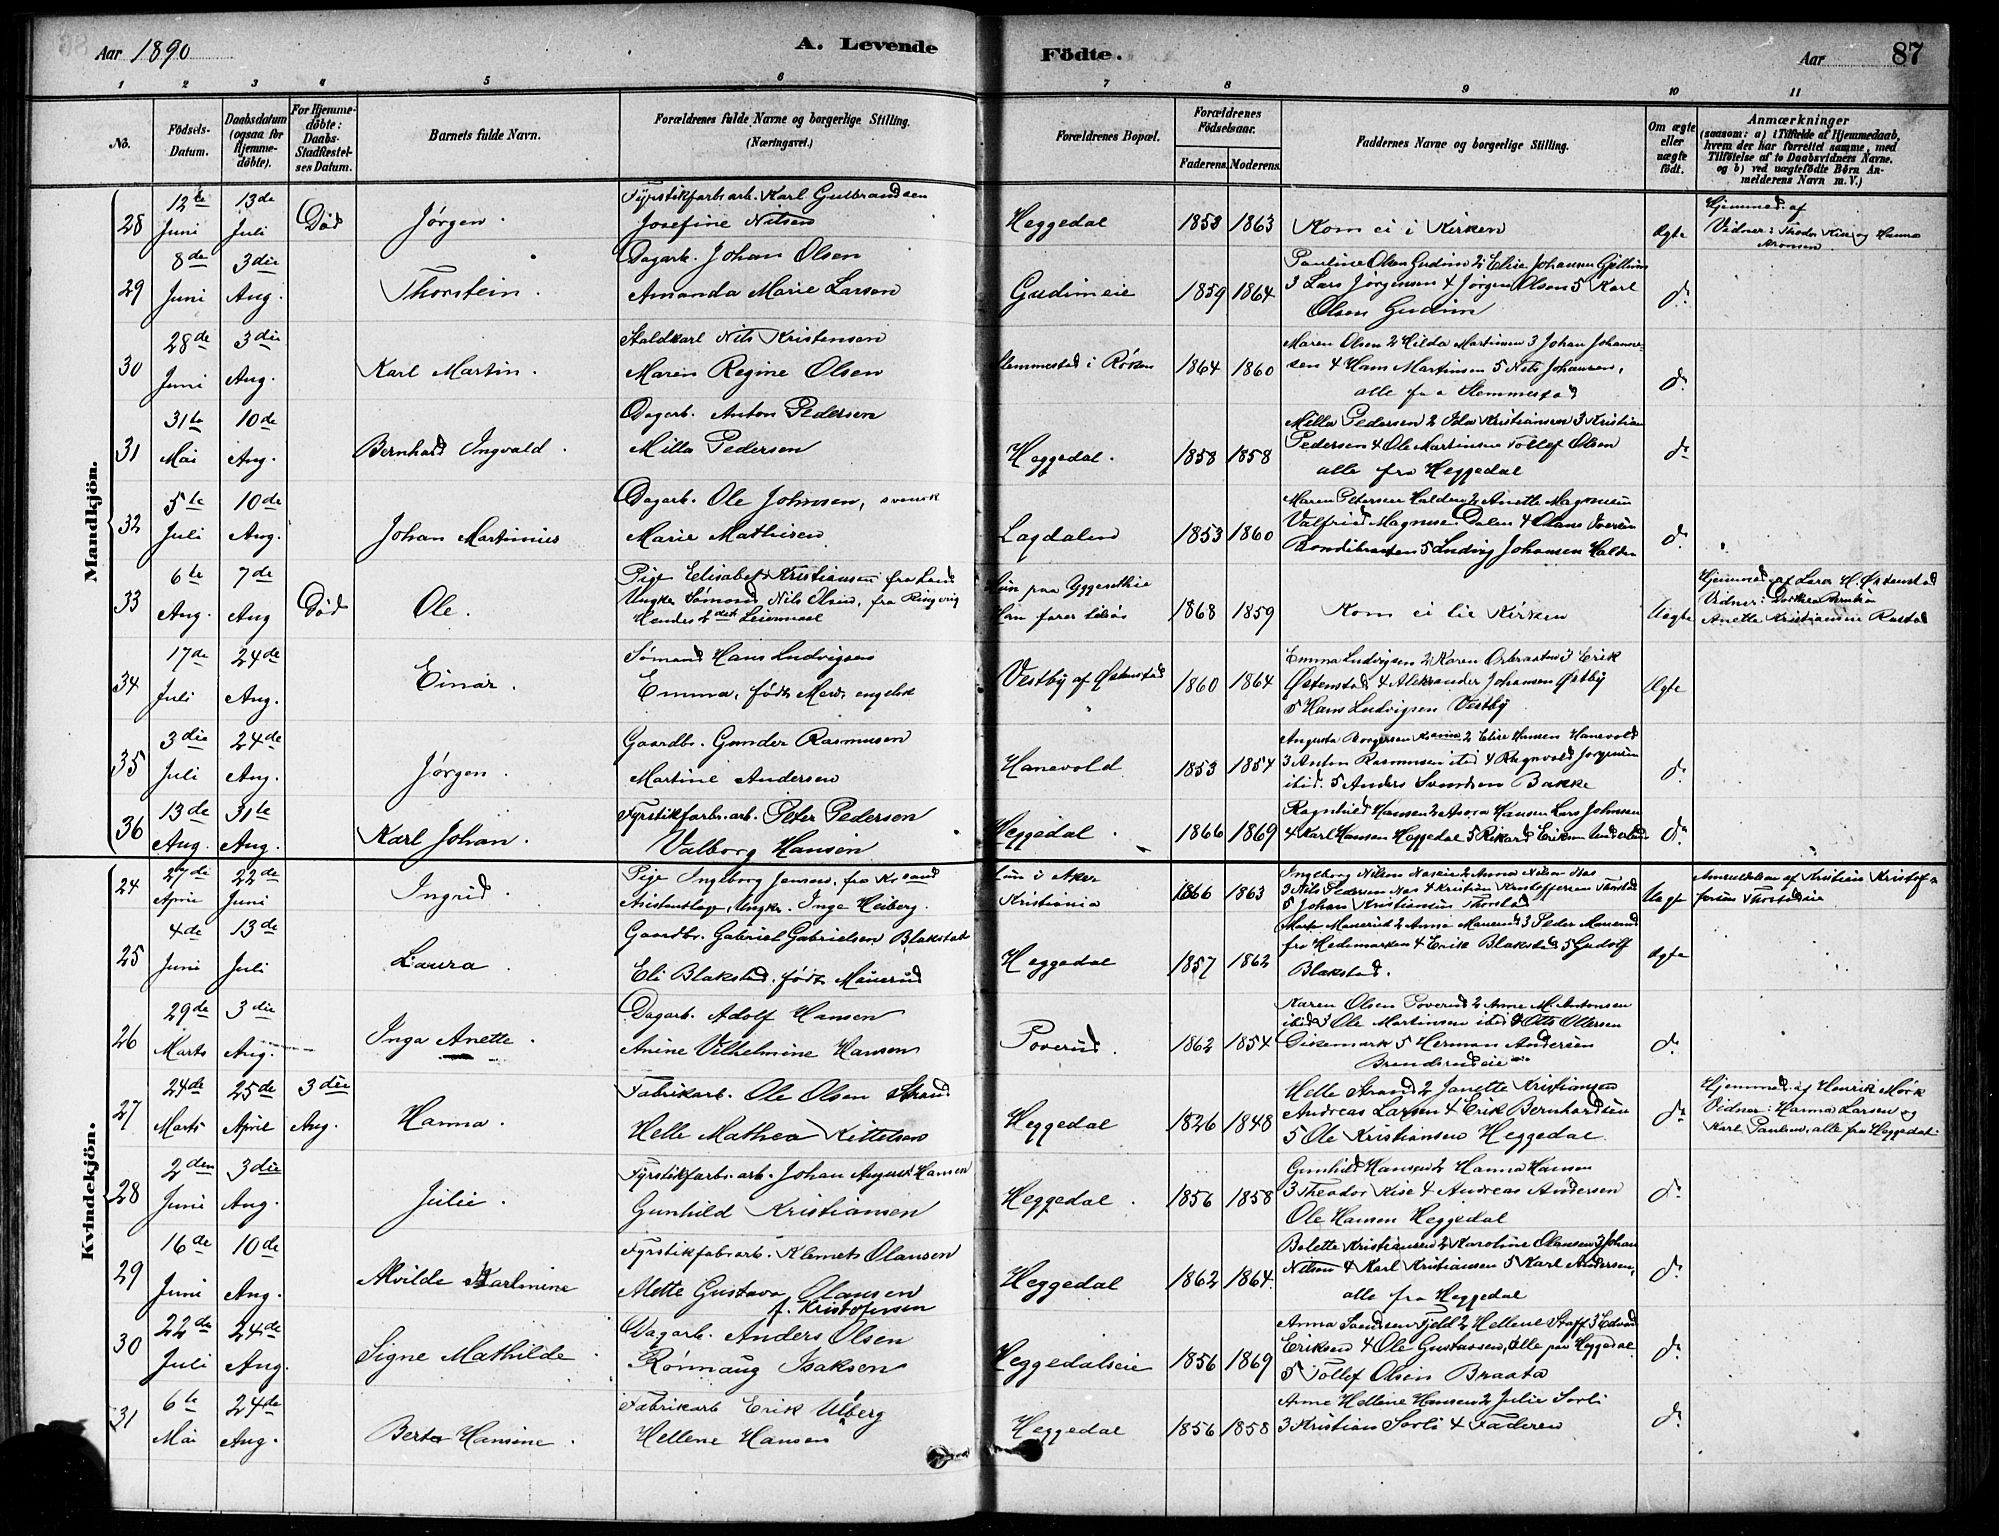 Aar 1890
A. Levende
Födte.
Aar
87
1 2 3 4 5 6 7 8 9 10 11
No.
Födsels-
Datum.
Daabsdatum
(ogsaa for
Hjemme-
döbte).
For Hjemme-
döbte:
Daabs-
Stadfæstel-
ses Datum.
Barnets fulde Navn.
Forældrenes fulde Navne og borgerlige Stilling.
(Næringsvei.)
Forældrenes Bopæl.
Forældrenes
Födselsaar.
Faderens. Moderens.
Faddernes Navne og borgerlige Stilling.
Om ægte
eller
uægte
födt.
Anmærkninger
(saasom: a) i Tilfælde af Hjemmedaab,
hvem der har forrettet samme, med
Tilföielse af to Daabsvidners Navne.
og b) ved uægtefödte Börn An-
melderens Navn m. V.)
Mandkjön.
28 12te Juni 13de Juli Död Jørgen.
Fyrstikfarb. arb. Karl Gulbrandsen
Josefine Nilsen
Heggedal 1858 1863 Kom ei i Kirken Ægte
Hjemmed. af
Vidner: Theodor Kise og Hanna
Aronsen
29 8de Juni 3die Aug. Thorstein.
Dagarb. Johan Olsen
Amanda Marie Larsen
Gudimeie 1859 1864
Pauline Olsen Gudim 2 Elise Johansen Gjellum
3 Lars Jørgensen 4 Jørgen Olsen 5 Karl
Olsen Gudim
do
30 28de Juni 3die Aug. Karl Martin.
Staldkarl Nils Kristensen
Maren Regine Olsen
Slemmestad i Røken 1864 1860
Maren Olsen 2 Hilda Martinsen 3 Johan Johanne-
sen 4 Hans Martinsen 5 Nils Johansen,
alle fra Slemmestad
do
31 31te Mai 10de Aug. Bernhard Ingvald.
Dagarb. Anton Pedersen
Milla Pedersen
Heggedal. 1858 1858
Milla Pedersen 2 Ida Kristiansen 3 Kristian
Pedersen 4 Ole Martinsen Tollef Olsen
alle fra Heggedal
do
32 5te Juli 10de Aug. Johan Martinius
Dagarb. Ole Johnsen, svensk
Marie Mathisen
Lagdalen 1853 1860
Maren Petersen Halden 2 Anette Magnusen
Valfrid Magnusen Dalen 4 Olaus Iversen
Bondibraaten 5 Ludvig Johansen Halden
do
33 6te Aug. 7de Aug Död Ole.
Pige Elisabet Kristiansen fra Land
Ungkar Sømand Nils Olsen, fra Ringerig
Hendes 2det Leiermaal
Hun paa Yggesethie
Han farer tilsøs
1868 1859 Kom ei til Kirken Uægte
Hjemmed. af Lars H. Østenstad
Vidner: Dorthea
Anette Kristiansen
34 17de Juli 24de Aug. Einar.
Sømand Hans Ludvigsen
Emma, født engelsk
Vestby af Østenstad 1860 1864
Emma Ludvigsen 2 Karen 3 Erik
Østenstad 4 Aleksander Johansen Østby
5 Hans Ludvigsen Vestby
Ægte
35 3die Juli 24de Aug. Jørgen.
Gaardbr. Gunder Rasmusen
Martine Andersen
Hanevold 1853 1854
Augusta Borgersen 2 Elise Hansen Hanevold
3 Anton Rasmusen ibid 4 Ragnvold Jørgensen
ibid. 5 Anders Svendsen Bakke
do
36 13de Aug. 31te Aug. Karl Johan.
Fyrstikfarbr. arb. Peter Pederson
Valborg Hansen
Heggedal. 1866 1869
Ragnhild Hansen 2 Hansen Lars Johnsen
4 Karl Hansen Heggedal 5 Rikard Eriksen
do
Kvindekjön.
24 27de April 22de Juni Ingrid.
Pige Ingeborg Jensen, fra Kr.sand
Ungkr. Inge Heiberg.
Hun i Aker
Kristiania
1866 1863
Ingeborg Nilsen 2 Anna Nilsen Næs
3 Nils Pedersen Næs 4 Kristian Kristoffersen Thorstad
5 Johan Kristiansen Thorstad
Uægte
Anmeldelsen af Kristian Kristof-
fersen Thorstadeie
25 4de Juni 13de Juli Laura.
Gaardbr. Gabriel Gabrielsen Blakstad
Eli Blakstad. født Mauerud
Heggedal 1857 1862
Marte Mauerud 2 Anne Mauerud 3 Peder Mauerud
fra Hedemarken 4 Erik Blakstad 5 Gudolf
Blakstad.
Ægte
26 29de Marts 3die Aug. Inga Anette.
Dagarb. Adolf Hansen
Anine Vilhelmine Hansen
Poverud. 1862 1854
Karen Olsen Poverud 2 Anne M. Antonsen
ibid 3 Ole Martinsen ibid 4 Otto Ottersen
Dikemark 5 Herman Andersen
Brendsrudeie
do
27 24de Marts 25de April 3die Aug. Hanna.
Fabrikarb. Ole Olsen Strand
Helle Mathea Kittelsen
Heggedal 1826 1848
Helle Strand 2 Janette Kristiansen
Andreas Larsen 4 Erik Bernhardsen
5 Ole Kristiansen Heggedal.
do
Hjemmed. af Henrik Mørk
Vidner: Hanna Larsen og
Karl Paulsen, alle fra Heggedal.
28 2den Juni 3die Aug. Julie.
Fyrstikfarb. arb. Johan August Hansen
Gunhild Kristiansen
Heggedal. 1856 1858
Gunhild Hansen 2 Hanna Hansen
3 Theodor Kise 4 Andreas Andersen
Ole Hansen Heggedal
do
29 16de Juni 10de Aug. Alvilde Karlmine
Fyrstikfab. arb. Klemet Olausen
Mette Gustava Olausen
f. Kristofersen
Heggedal 1862 1864.
Bolette Kristiansen 2 Karoline Olausen 3 Johan
Nilsen 4 Karl Kristiansen 5 Karl Andersen,
alle fra Heggedal
do
30 22de Juli 24de Aug. Signe Mathilde.
Dagarb. Anders Olsen
Rønnaug Isaksen
Heggedalseie 1856 1869
Anna Svendsen Fjeld 2 Hellene Staff 3 Edvard
Eriksen 4 Ole Gustavsen, alle paa Heggedal
5 Tollef Olsen Braata
do
31 6te Mai 24de Aug. Berta Hansine.
Fabrikarb Erik Ulberg
Hellene Hansen
Heggedal 1856 1858
Anne Hellene Hansen 2 Julie Sorli
3 Kristian Sorli 4 Faderen
do